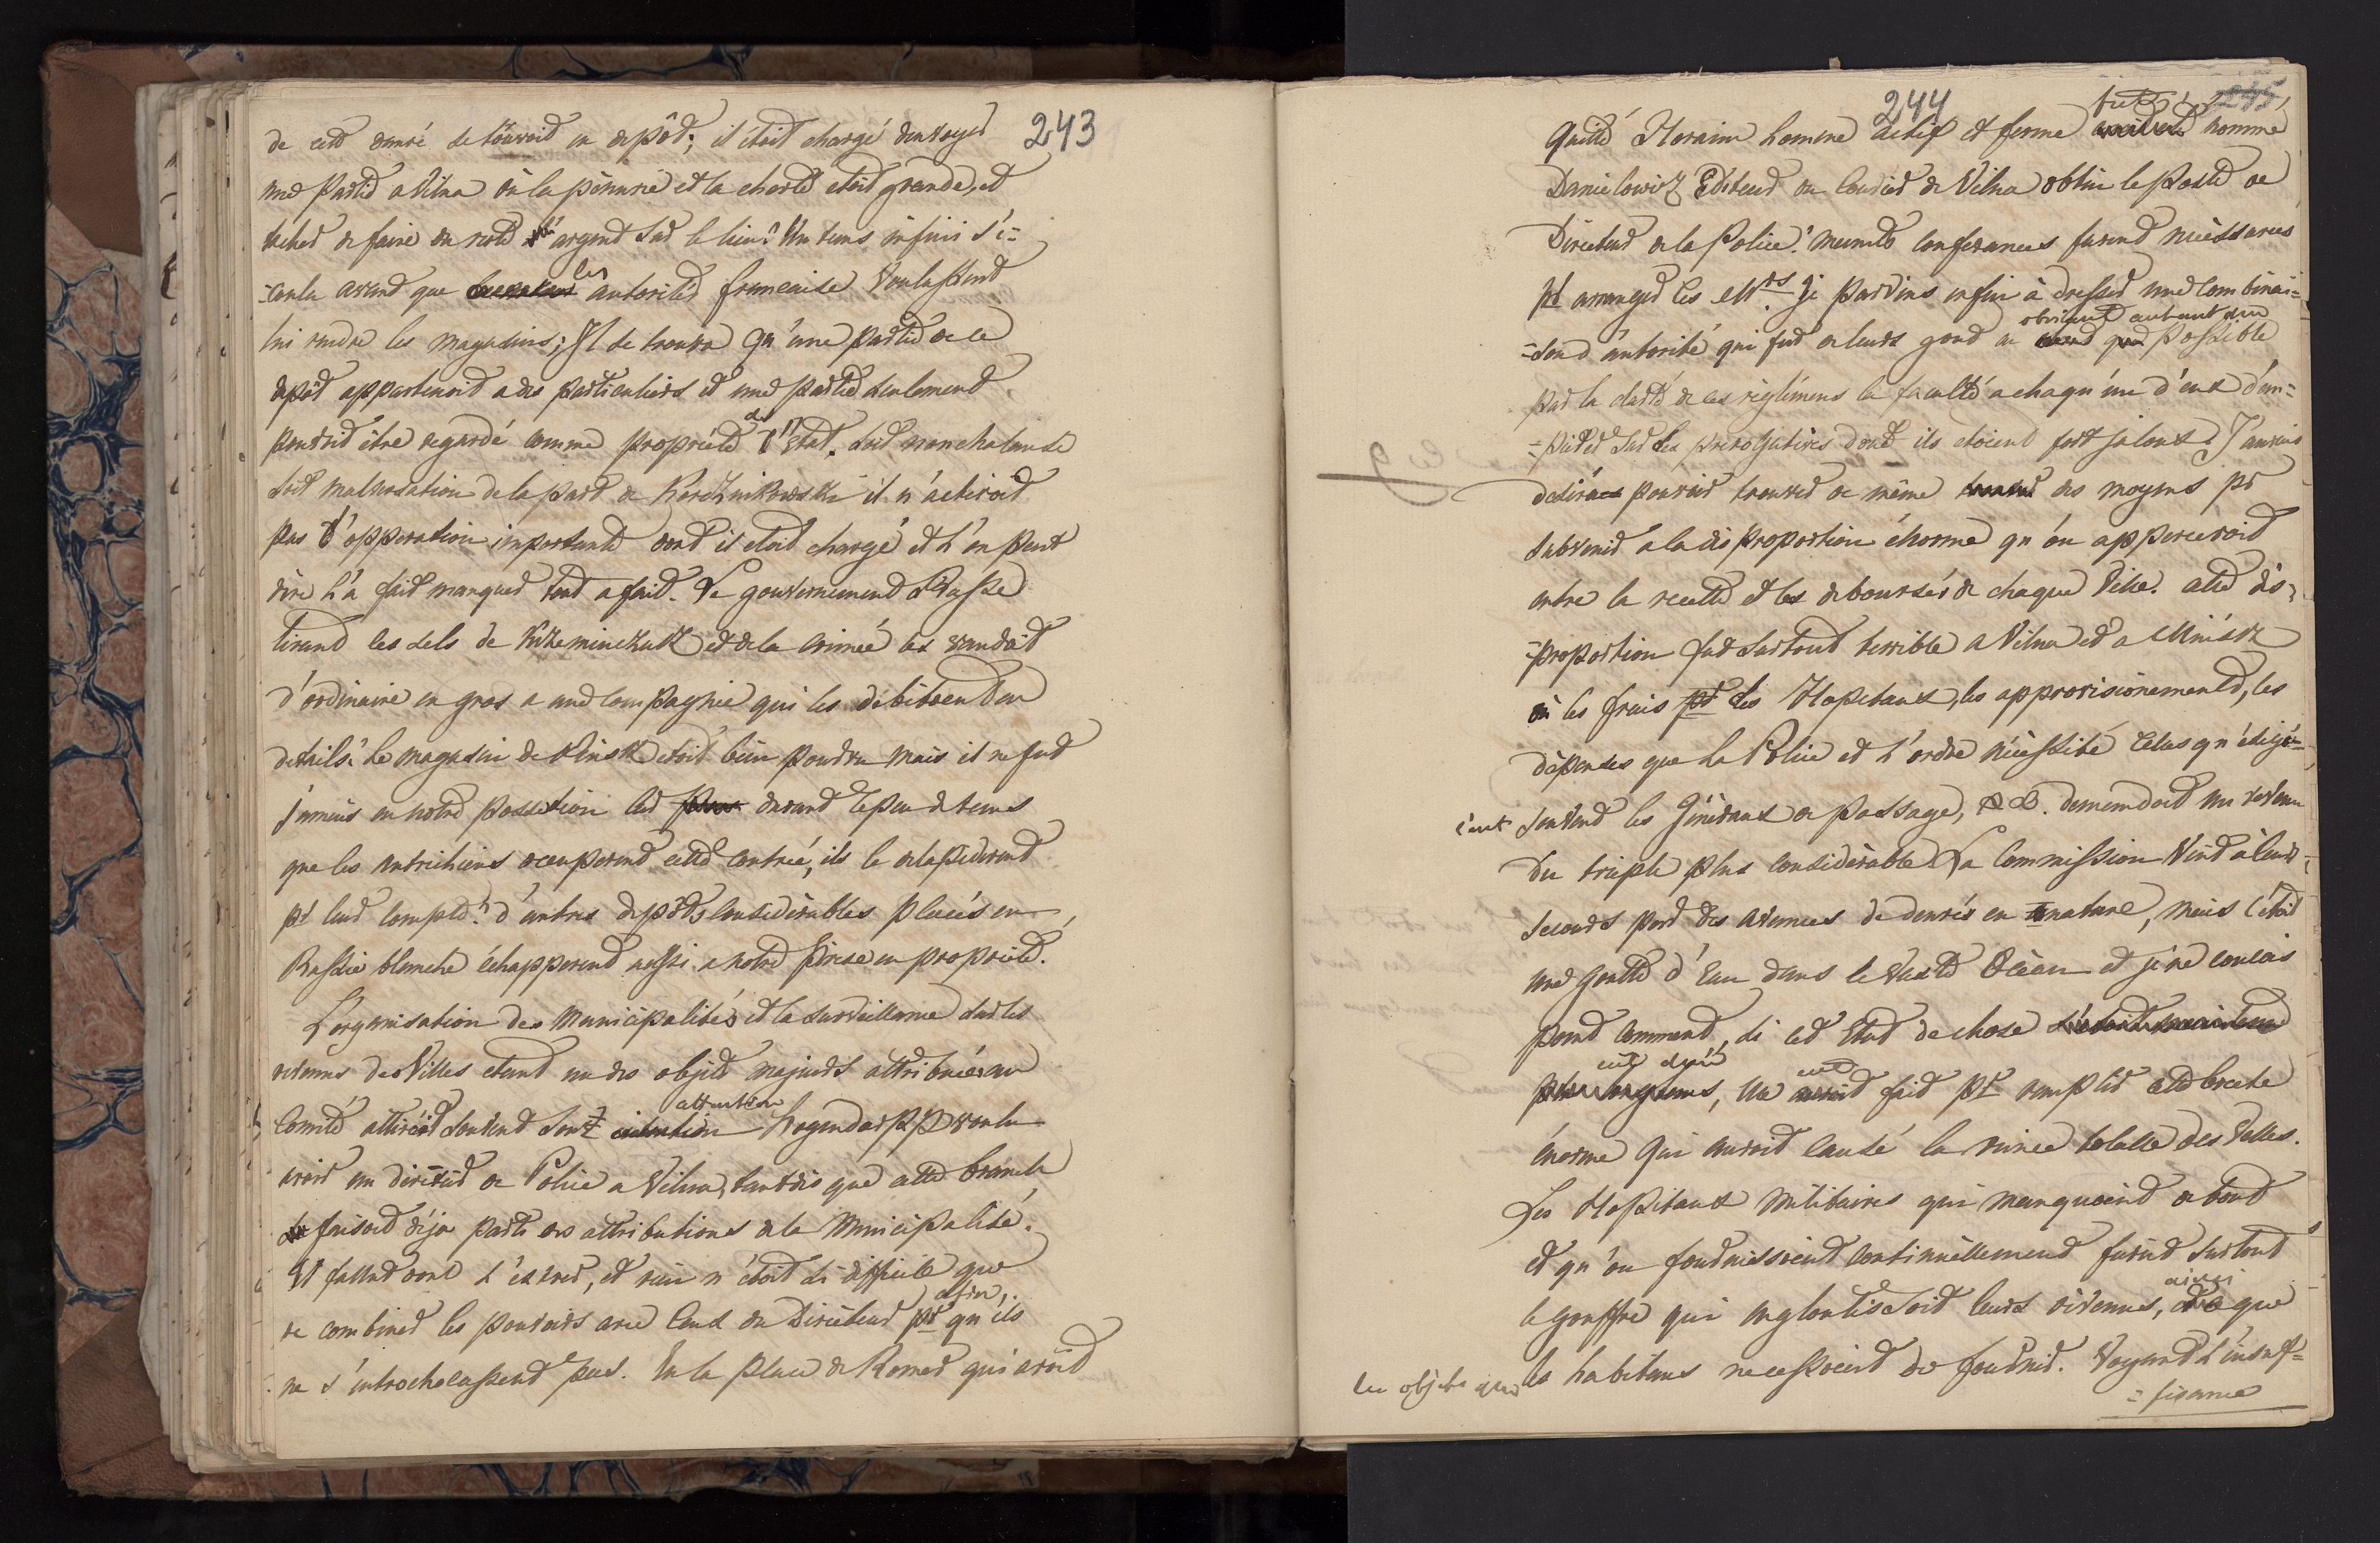 243
de cette denré se trouvoit en depôt; il étoit chargé d'envoyer
une partie a Vilna où la pénurie et la cherté etoit grande, et
tacher de faire du reste de l'argent sur le lieu. Un tems infini s'é=
=coula avant que les autorités francaise voulussent
lui rendre les magasins; Il se trouva qu'une partie de ce
depôt appartenoit a des particuliers et une partie seulement
pouvoit être regardé comme propriété de l'Etat. soit nonchalance
soit malversation de la part de il n'acheva
pas l'opperation importante dont il etoit chargé et l'on peut
dire l'a fait manquer tout a fait. Le gouvernement Russe
tirant les sels de Krzeminczuk et de la Crimée les vendoit
d'ordinaire en gros a une compagnie qui les débitoient en
details. Le magasin de Pinsk etoit bien pourvu mais il ne fut
jamais en notre possession car durant le peu de tems
que les Autrichiens occuperent cette contrée, ils le
pr leur compte. d'autres depôts considérables placés en
Russie blanche échapperent aussi a notre prise en propriété.
L'organisation des Municipalités et la surveillance sur les
revenus des Villes etant un des objets majeurs attribués au
Comité attiroit souvent son attention Hogendorp voulu
avoir un directeur de Police a Vilna, tandis que cette branche
faisoit déja partie des attributions de la Municipalité.
Il fallut donc l'extraire, et rien n'étoit si difficile que
de combiner les pouvoirs avec ceux du Directeur afin qu'ils
ne s'entrochoquassent pas. En la place de Romer qui avoit
244
245
quitté Horain homme actif et ferme fut nommé
Danielowicz Editeur du Courier de Vilna obtin le poste de
Directeur de la Police. maintes conferances furent nécéssaires
pr arranger ces Mrs. Je parvins enfin à dresser une combinai=
=son d'autorité qui fut de leurs gout en obviant autant que possible
par la clarté de ces réglémens la faculté a chaqu'un d'eux d'em=
=piéter sur les prerogatives dont ils étoient fort jaloux. J'aurois
desiré pouvoir trouver de même des moyens pr
subvenir a la disproportion énorme qu'on appercevoit
entre la recette et les deboursés de chaque Ville. cette dis=
=proportion fut surtout terrible a Vilna et a Minsk
où les frais pr les Hopitaux, les approvisionements, les
dépenses que la Police et l'ordre nécéssité celles qu'éxigé=
=rent souvent les Généraux de passage, &c. demandoit un revenu
Du triple plus considérable. La Commission vint à leur
secours par des avances de denrés en nature, mais c'étoit
une goutte d'Eau dans le vaste Océan et je ne concois
point comment, si cet Etat de chose
eut duré, on eut fait pr remplir cette breche
énorme qui auroit causé la ruine totalle des Villes.
Les Hopitaux Militaires qui manquoient de tout
et qu'on fournissoient continuellement furent surtout
le gouffre qui engloutissoit leurs revenus, ainsi que
les objets que les habitans ne cessoient de fournir. Voyant l'insuf=
=fisance